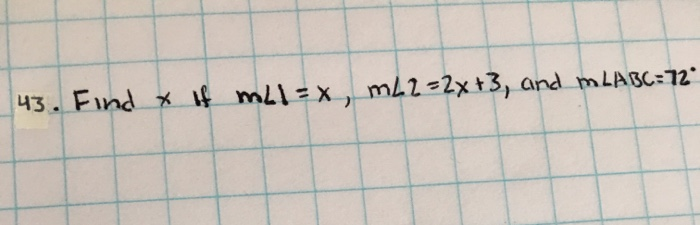 43. Find x if m∠1 = x, m∠2 = 2x+3, and m∠ABC = 72°